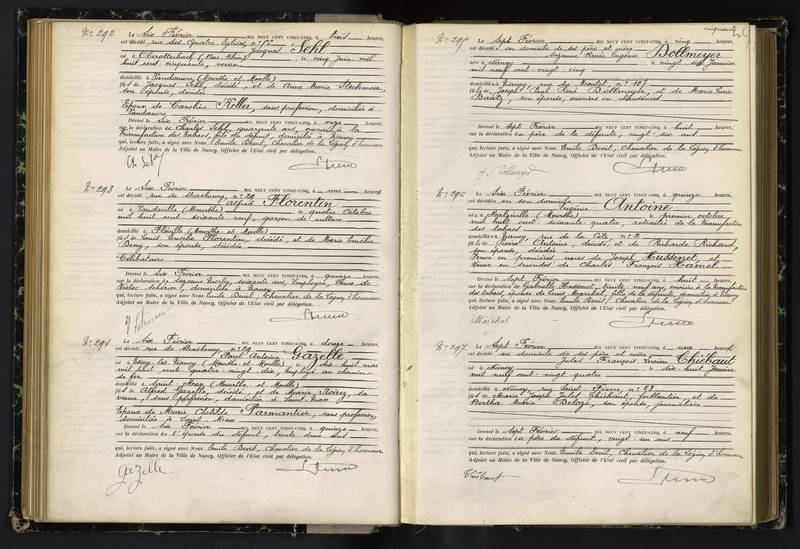 N: 292
Le Six Février MIL NEUF CENT VINGT-CINQ, à trois heures,
est décédé rue des Quatre Eglises, n°
Jacques Sehl
à Oberotterbach (Bas-Rhin) le cinq juin mil
huit cent cinquante,
domicilié à Vandœuvre (Meurthe et Moselle)
fils de Jacques Sehl, décédé, et de Anne Marie
son épouse, décédée
Epoux de Caroline Keller, sans profession, domiciliée à
Vandœuvre
Dressé le Six Février MIL NEUF CENT VINGT-CINQ, à onze heures,
sur la déclaration de Charles Sehl, quarante ans, ouvrier à la
manufacture des tabacs, fils du défunt, domicilié à Nancy
qui, lecture faite, a signé avec Nous Emile Devit, Chevalier de la Légion d'honneur
Adjoint au Maire de la Ville de Nancy, Officier de l'Etat civil par délégation.
N: 293
Le Six Février MIL NEUF CENT VINGT-CINQ, à une heures,
est décédé rue de Strasbourg, n°
Alfred Florentin
né à Vandeville (Meurthe) le quatre Octobre
mil huit cent soixante neuf, garçon de culture
domicilié à Fléville (Meurthe et Moselle)
fils de Louis Florentin, décédé, et de Marie
son épouse, décédée
Célibataire
Dressé le Six Février MIL NEUF CENT VINGT-CINQ, à quinze heures,
sur la déclaration de soixante ans, Employée, Veuve de
Victor domiciliée à Nancy
qui, lecture faite, a signé avec Nous Emile Devit, Chevalier de la Légion d'honneur
Adjoint au Maire de la Ville de Nancy, Officier de l'Etat civil par délégation.
N: 294
Le Six Février MIL NEUF CENT VINGT-CINQ, à douze heures,
est décédé rue de Strasbourg, n°
Paul Antoine Gazelle
né à Essey les Nancy (Meurthe et Moselle) le dix huit mai
mil huit cent quatre vingt-dix, Employé au chemin
de fer
domicilié à Saint Max (Meurthe et Moselle)
fils de Alfred Gazelle, décédé, et de Marie sa
veuve, sans profession, domiciliée à Saint Max
Epoux de Marie Clotilde Parmantier, sans profession,
domiciliée à Saint Max
Dressé le Six Février MIL NEUF CENT VINGT-CINQ, à quinze heures,
sur la déclaration de du défunt, trente deux ans
qui, lecture faite, a signé avec Nous Emile Devit, Chevalier de la Légion d'honneur
Adjoint au Maire de la Ville de Nancy, Officier de l'Etat civil par délégation.
Gazelle
N: 295
Le Sept Février MIL NEUF CENT VINGT-CINQ, à cinq heures,
est décédée au domicile de ses père et mère
Suzanne Renée Eugénie Dollmeyer
née à Nancy le vingt Janvier
mil neuf cent vingt cinq
domiciliée à Nancy rue de Mondet, n° 107
fille de Joseph Paul René Dollmeyer, et de Marie
son épouse, ouvriers en chaussures
Dressé le Sept Février MIL NEUF CENT VINGT-CINQ, à huit heures,
sur la déclaration du père de la défunte, vingt-six ans
qui, lecture faite, a signé avec Nous Emile Devit, Chevalier de la Légion d'honneur
Adjoint au Maire de la Ville de Nancy, Officier de l'Etat civil par délégation.
Dollmeyer
N: 296
Le Six Février MIL NEUF CENT VINGT-CINQ, à quinze heures,
est décédée en son domicile
Eugénie Antoine
née à (Meurthe) le premier octobre
mil huit cent soixante quatre, retraitée de la manufacture
des tabacs
domiciliée à Nancy, rue de la Côte, n°
fille de Antoine, décédé, et de Richarde Richard,
son épouse, décédée
Veuve en premières noces de Joseph Hussenet, et
Veuve en secondes de Charles François Hamet
Dressé le Sept Février MIL NEUF CENT VINGT-CINQ, à huit heures,
sur la déclaration de Gabrielle Hussenet, trente neuf ans, ouvrière à la manufacture
des tabacs, épouse de Louis Marchal, fille de la défunte, domiciliée à Nancy
qui, lecture faite, a signé avec Nous Emile Devit, Chevalier de la Légion d'honneur
Adjoint au Maire de la Ville de Nancy, Officier de l'Etat civil par délégation.
Marchal
N: 297
Le Sept Février MIL NEUF CENT VINGT-CINQ, à heures,
est décédé au domicile de ses père et mère
Jules François Lucien Thiébaut
né à Nancy le dix huit Janvier
mil neuf cent vingt quatre
domicilié à Nancy, rue Saint n° 23
fils de Marie Joseph Jules Thiébaut, ferblantier, et de
Bertha Marie son épouse, journalière
Dressé le Sept Février MIL NEUF CENT VINGT-CINQ, à neuf heures,
sur la déclaration du père du défunt, vingt ans
qui, lecture faite, a signé avec Nous Emile Devit, Chevalier de la Légion d'honneur
Adjoint au Maire de la Ville de Nancy, Officier de l'Etat civil par délégation.
Thiébaut